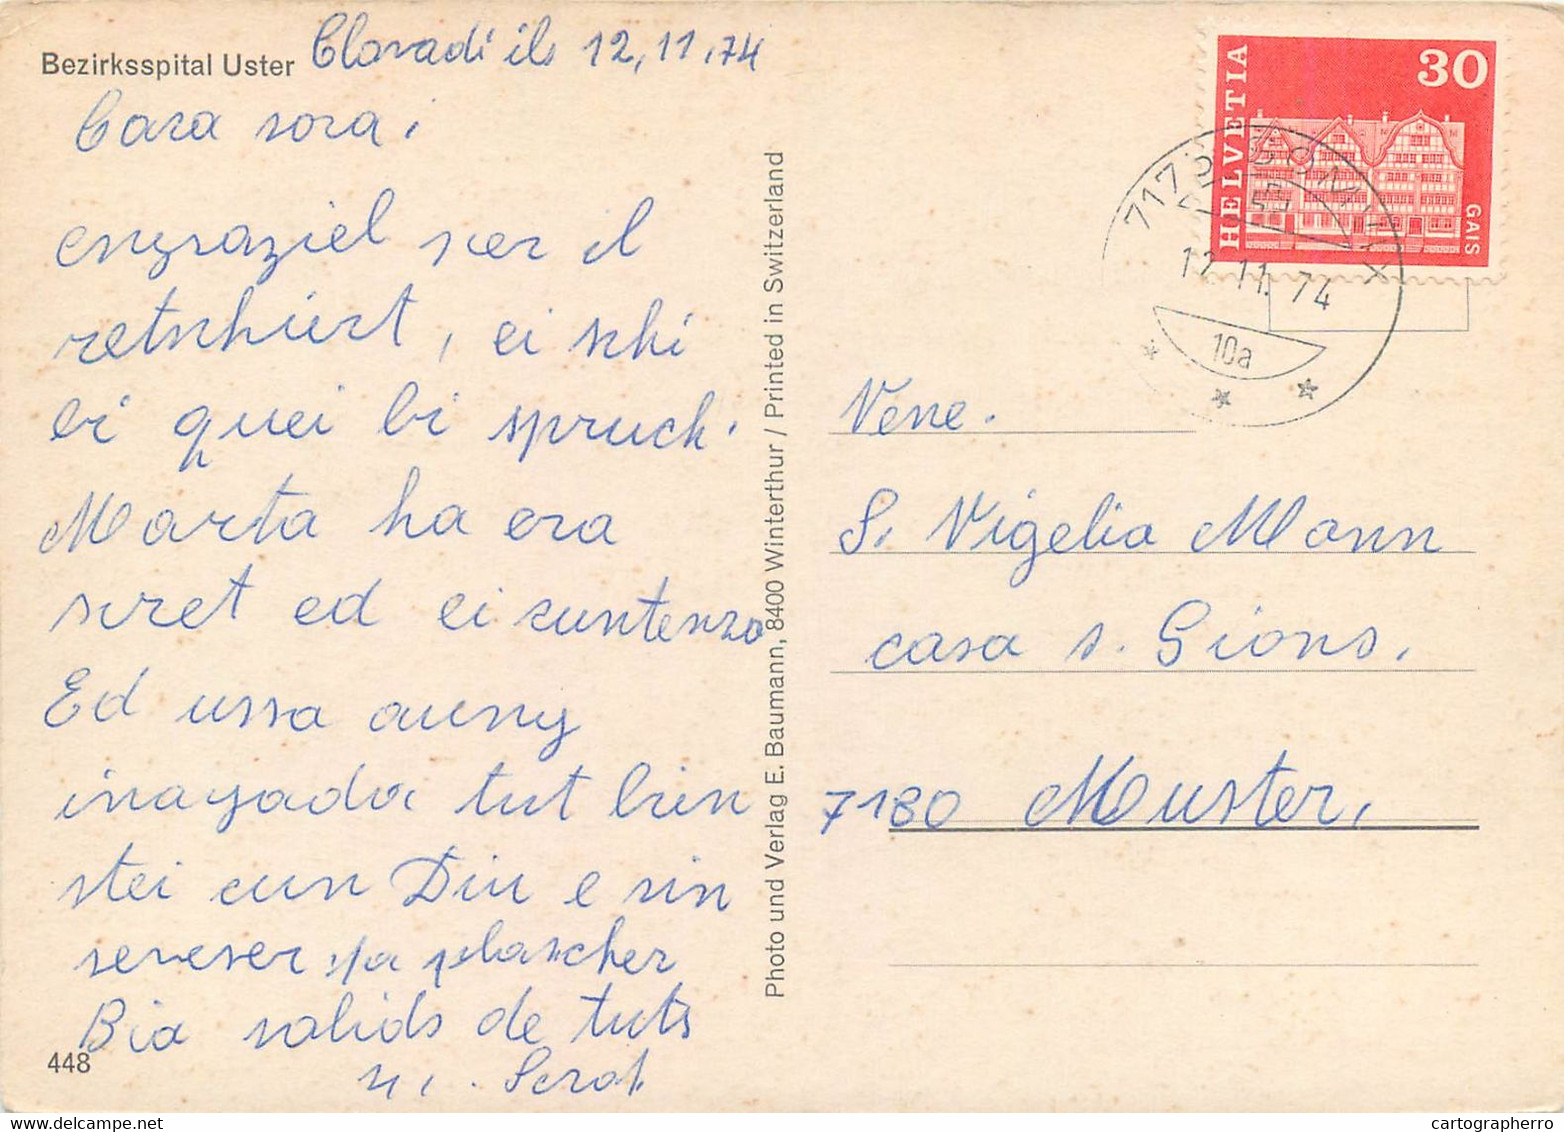 Bezirksspital Uster
Clavadi ils 12.11.74
Cara sora,
engraziel per il
retschiert, ei schi
ei quei bi spruch.
Marta ha era
scret ed ei cuntenza
Ed ussa aueng
inagada tut bien
stei cun Diu e sin
seveser pa plascher
Bia salids de tuts
448
Photo und Verlag E. Baumann, 8400 Winterthur / Printed in Switzerland
HELVETIA
30
GAIS
12.11.74
10a
Vene.
S. Vigelia Monn
casa s. Gions,
7180 Muster,
cartographerro